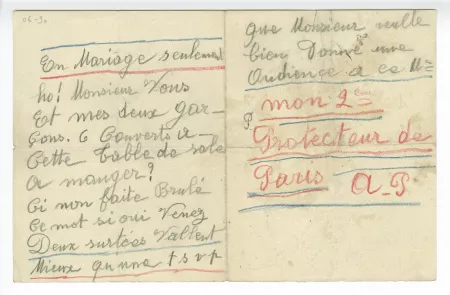 06-30
En Mariage seulement
ho! Monsieur Vous
Et mes deux gar-
Cons. 6 Couverts a-
Cette Table de sale
a manger?
Ci non faite Brulé
Ce mot si oui Venez
Deux surtées Vallent
Mieux qu'une t s v p
que Monsieur veille
bien Donné une
Audience a ce Mr
mon 2em
P
Protecteur de
Paris A-P